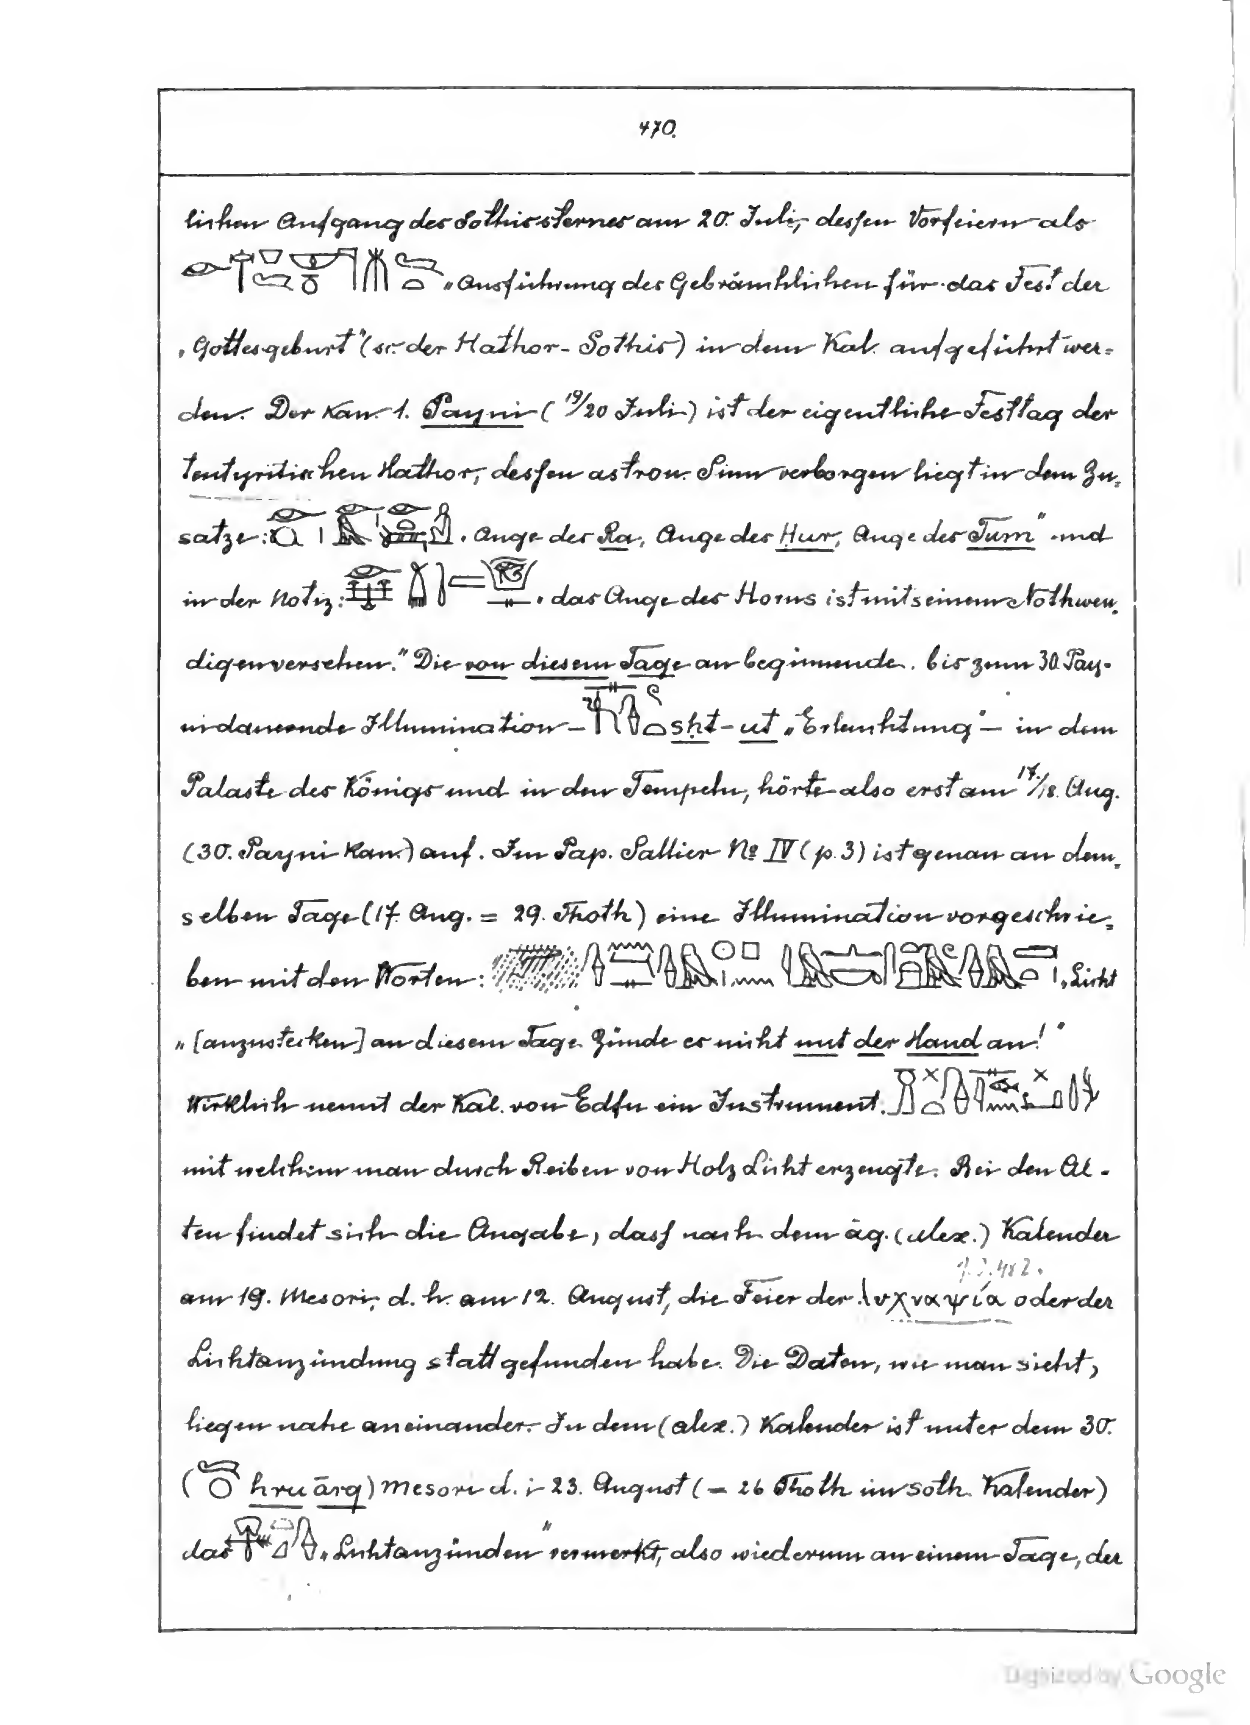 470.
lichen Aufgang des Sothissternes am 20. Juli, dessen Vorfeiern als
„Ausführung des Gebräuchlichen für das Fest der
„Gottesgeburt" (sc. der Hathor-Sothis) in dem Kal. aufgeführt wer-
den. Der Kan. 1. Payni (19/20 Juli) ist der eigentliche Festtag der
tentyritischen Hathor, dessen astron. Sinn verborgen liegt in dem Zu-
satze: Auge des Ra, Auge des Hur, Auge des Tum" und
in der Notiz: „das Auge des Horus ist mit seinem Nothwen-
digen versehen." Die von diesem Tage an beginnende, bis zum 30. Pay-
ni dauernde Illumination – sḥt-ut „Erleuchtung" – in dem
Palaste des Königs und in den Tempeln, hörte also erst am 17./18. Aug.
(30. Payni Kan.) auf. Im Pap. Sallier No IV (p. 3) ist genau an dem-
selben Tage (17. Aug. = 29. Thoth) eine Illumination vorgeschrie-
ben mit den Worten: „Licht
„[anzustecken] an diesem Tage. Zünde es nicht mit der Hand an!"
Wirklich nennt der Kal. von Edfu ein Instrument
mit welchem man durch Reiben von Holz Licht erzeugte. Bei den Al-
ten findet sich die Angabe, dass nach dem äg. (alex.) Kalender
am 19. Mesori, d. h. am 12. August, die Feier der λυχναψία oder der
Lichtanzündung stattgefunden habe. Die Daten, wie man sieht,
liegen nahe aneinander. In dem (alex.) Kalender ist unter dem 30.
( hru ārq) Mesori d. i. 23. August (= 26 Thoth im soth. Kalender)
das „Lichtanzünden" vermerkt, also wiederum an einem Tage, der
Digitized by Google